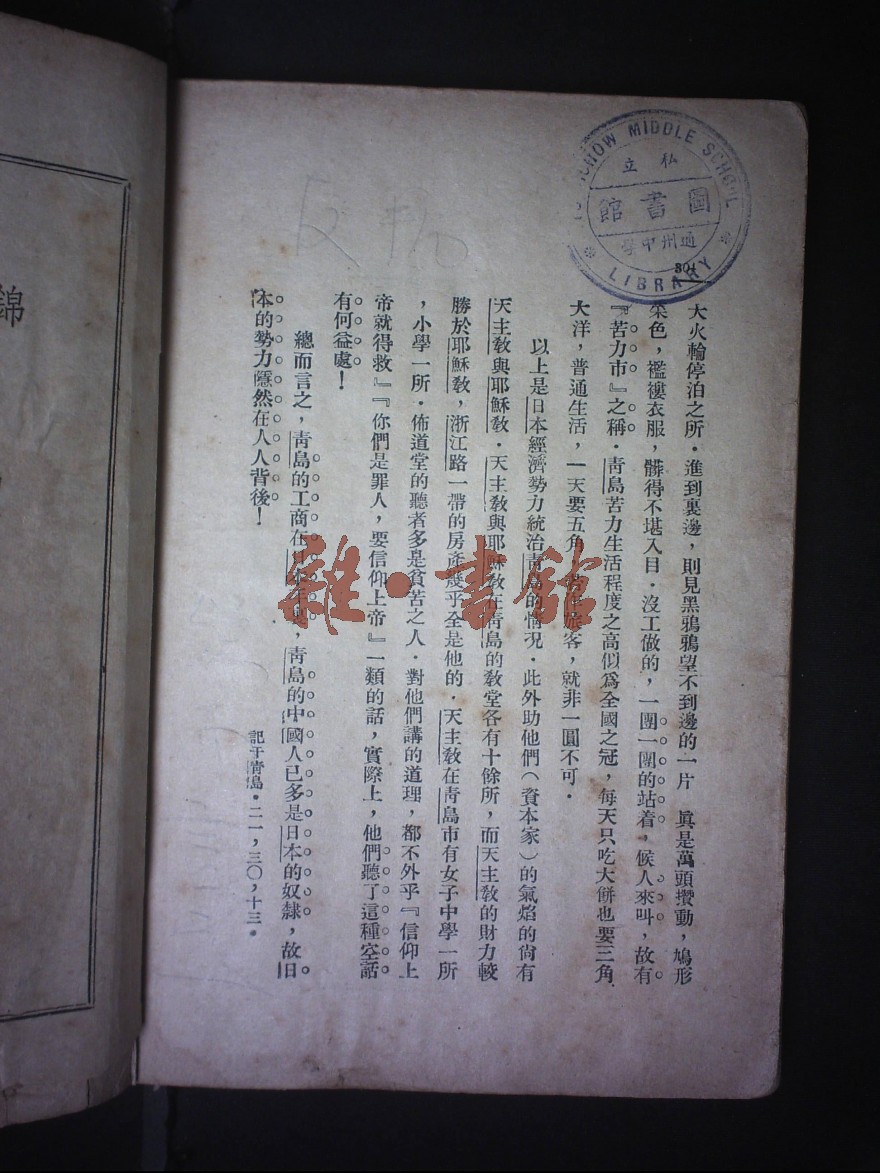 TUNGCHOW MIDDLE SCHOOL
私立
圖書館
通州中學
LIBRARY
301
大火輪停泊之所．進到裏邊，則見黑鴉鴉望不到邊的一片　眞是萬頭攢動，鳩形
菜色，襤褸衣服，髒得不堪入目．沒工做的，一團一團的站着，候人來叫，故有
『苦力市』之稱．青島苦力生活程度之高似爲全國之冠，每天只吃大餅也要三角
大洋，普通生活，一天要五角，旅客，就非一圓不可．
以上是日本經濟勢力統治青島的情况．此外助他們（資本家）的氣焰的尙有
天主教與耶穌教．天主教與耶穌教在青島的教堂各有十餘所，而天主教的財力較
勝於耶穌教，浙江路一帶的房產幾乎全是他的．天主教在青島市有女子中學一所
，小學一所．佈道堂的聽者多是貧苦之人．對他們講的道理，都不外乎『信仰上
帝就得救』『你們是罪人，要信仰上帝』一類的話，實際上，他們聽了這種空話
有何益處！
總而言之，青島的工商在日本手裏，青島的中國人已多是日本的奴隸，故日
本的勢力隱然在人人背後！
記于青島．二一，三〇，十三．
雜·書館
錦